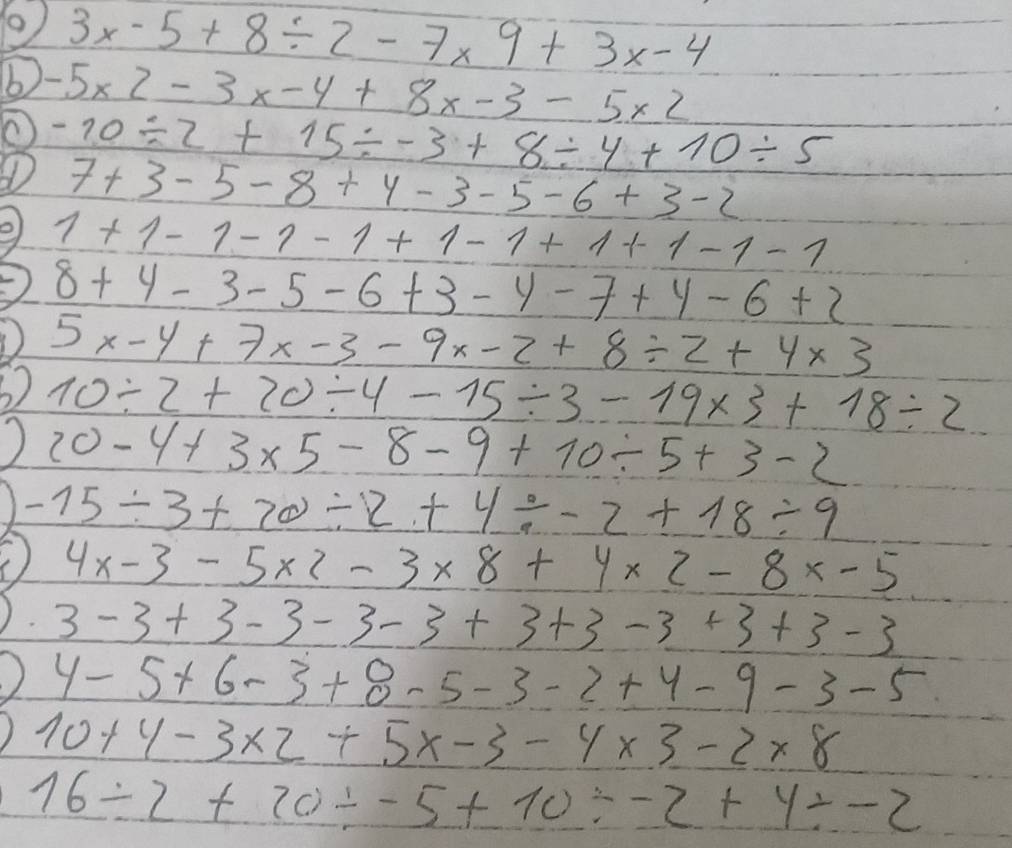 a) 3x-5+8÷2-7x9+3x-4
b) -5x2-3x-4+8x-3-5x2
c) -10÷2+15÷-3+8÷4+10÷5
d) 7+3-5-8+4-3-5-6+3-2
e) 1+1-1-1-1+1-1+1+1-1-1
8+4-3-5-6+3-4-7+4-6+2
5x-4+7x-3-9x-2+8÷2+4x3
10÷2+20÷4-15÷3-19x3+18÷2
20-4+3x5-8-9+10÷5+3-2
-15÷3+20÷2+4÷-2+18÷9
4x-3-5x2-3x8+4x2-8x-5
3-3+3-3-3-3+3+3-3+3+3-3
4-5+6-3+8-5-3-2+4-9-3-5
10+4-3x2+5x-3-4x3-2x8
16÷2+20÷-5+10÷-2+4÷-2